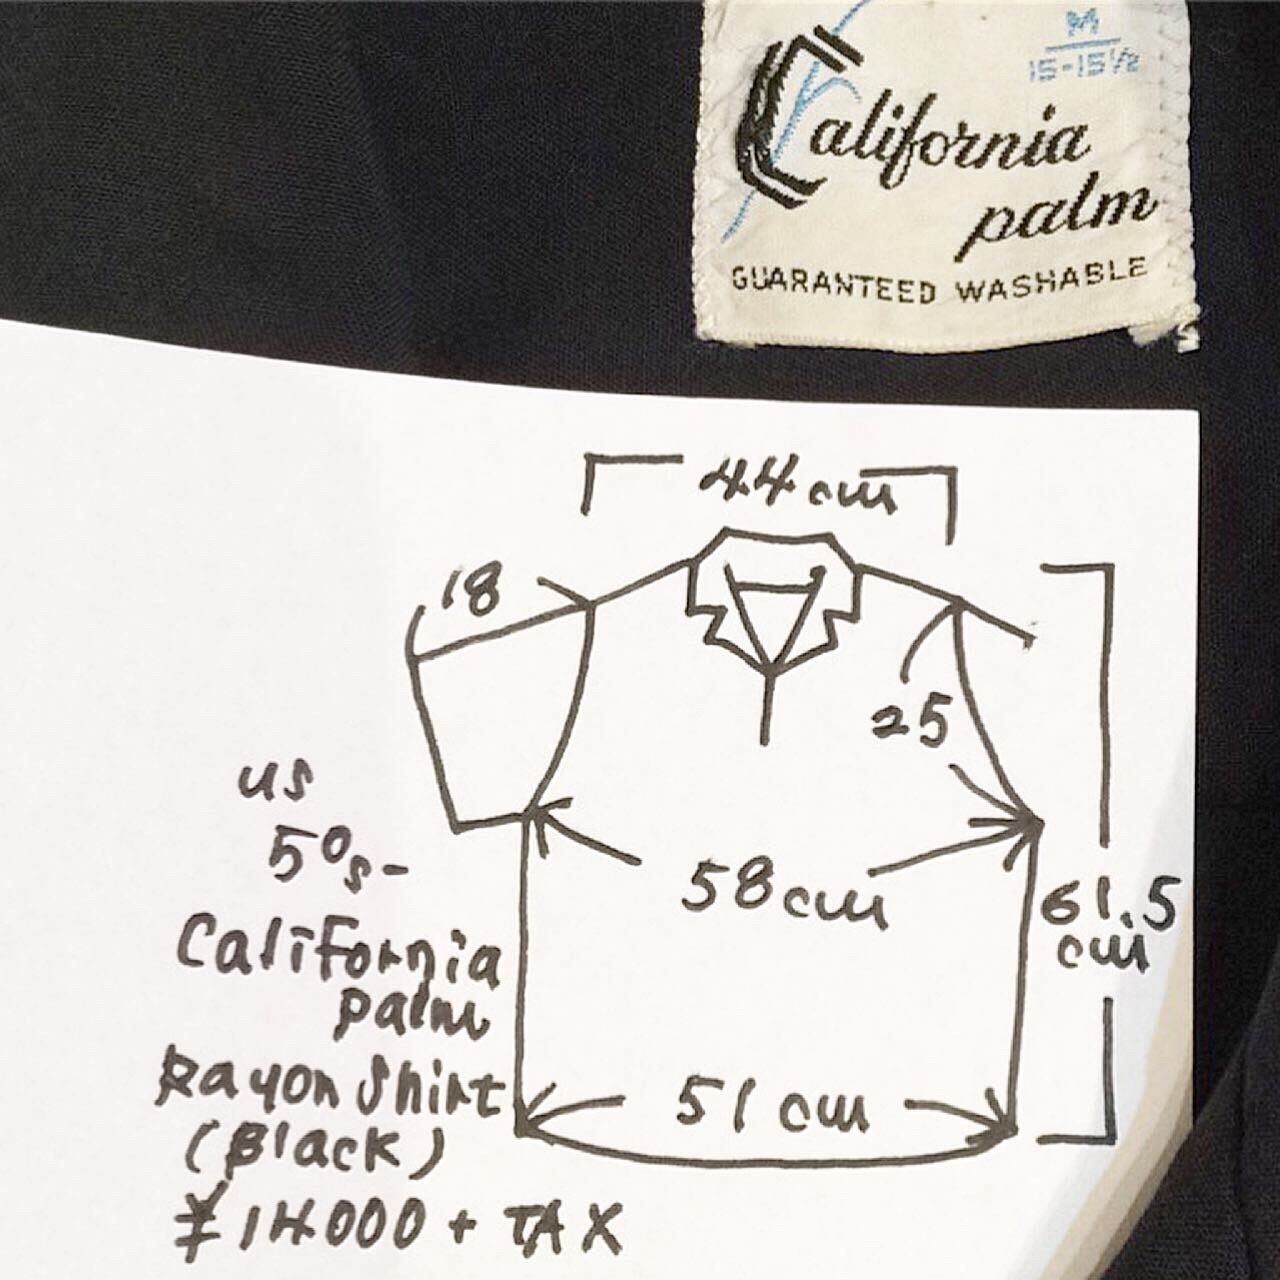 M
15-15½
California
palm
GUARANTEED WASHABLE
44cm
18
25
58cm
61.5
cm
51 cm
us
50s-
California
palm
Rayon Shirt
(Black)
¥14000 + TAX